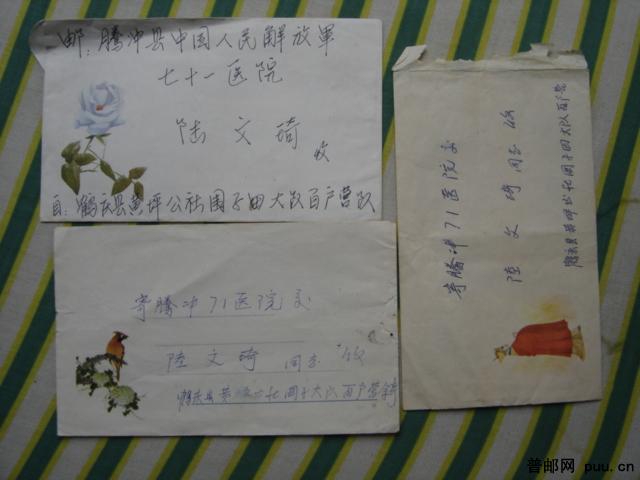 邮：腾冲县中国人民解放軍
七十一医院
陆文琦
收
自：鹤庆县黄坪公社围子田大队百户营队
寄腾冲71医院交
陸文琦同志收
鹤庆县黄坪公社围子大队百户营
寄腾冲71医院交
陸文琦同志收
鹤庆县黄坪公社围子田大队百户营
普邮网 puu.cn